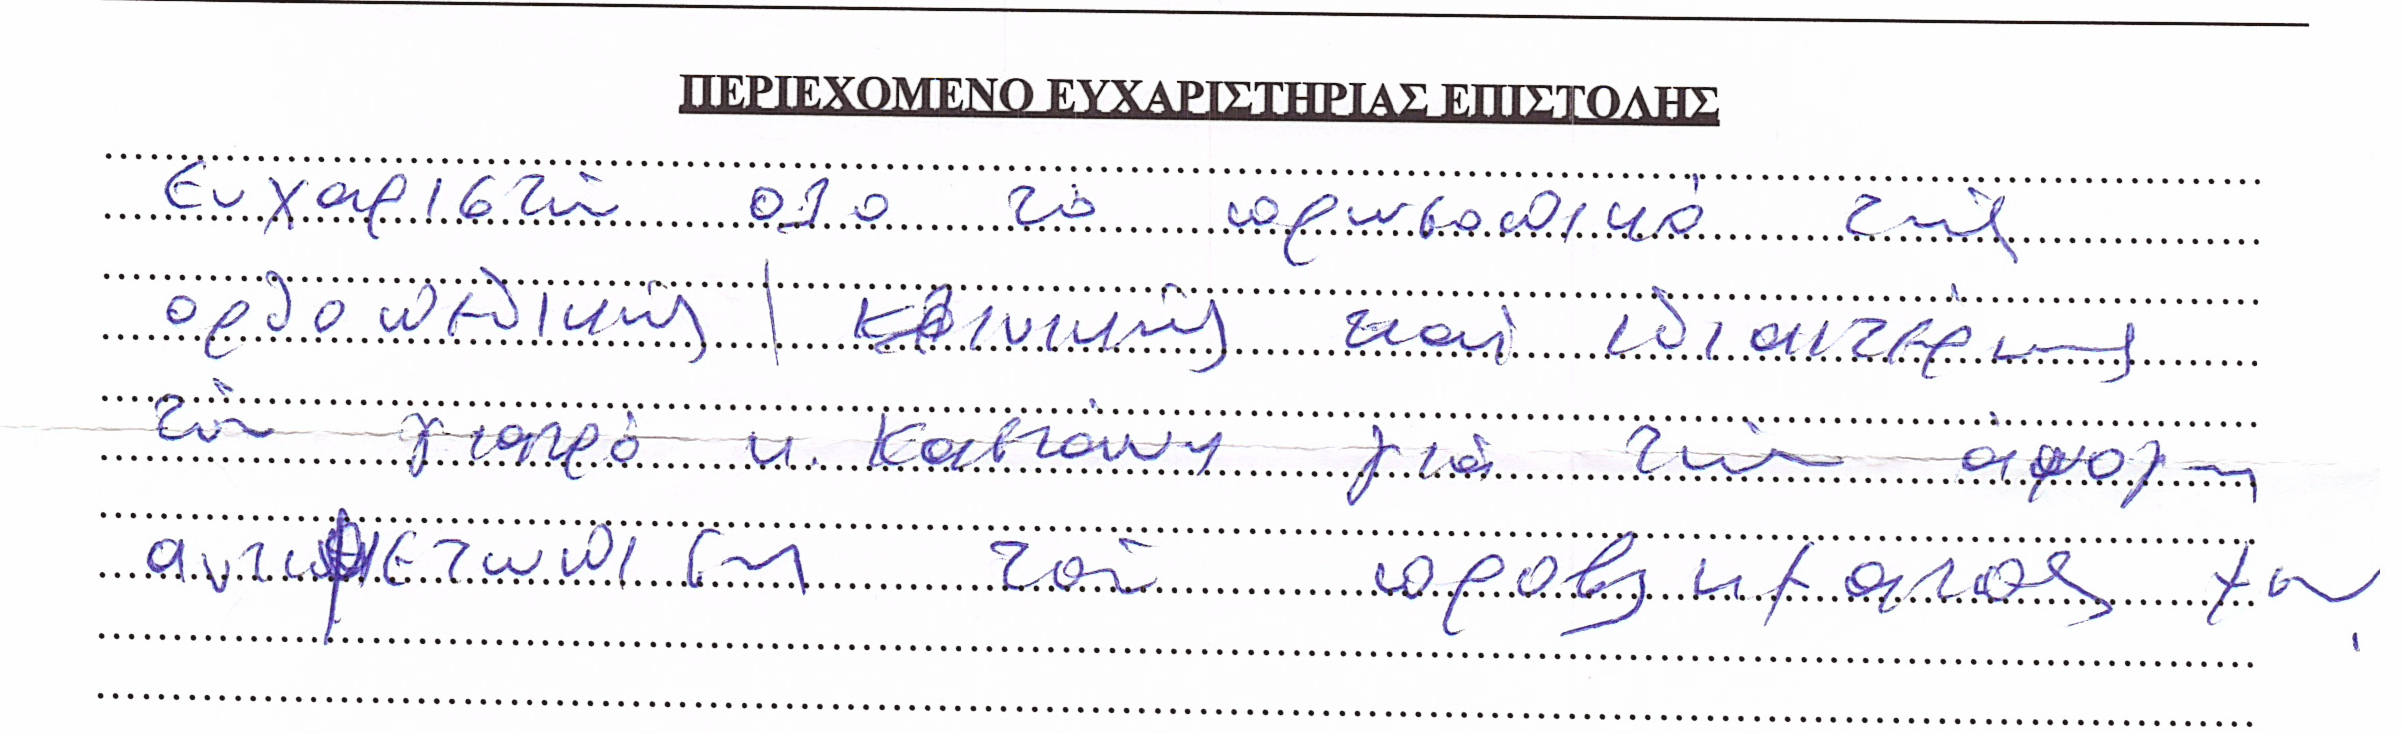 ΠΕΡΙΕΧΟΜΕΝΟ ΕΥΧΑΡΙΣΤΗΡΙΑΣ ΕΠΙΣΤΟΛΗΣ
Ευχαριστώ όλο το προσωπικό της
ορθοπεδικής κλινικής και ιδιαιτέρως
τον γιατρό κ. για την άψογη
αντιμετώπιση του προβλήματος μου